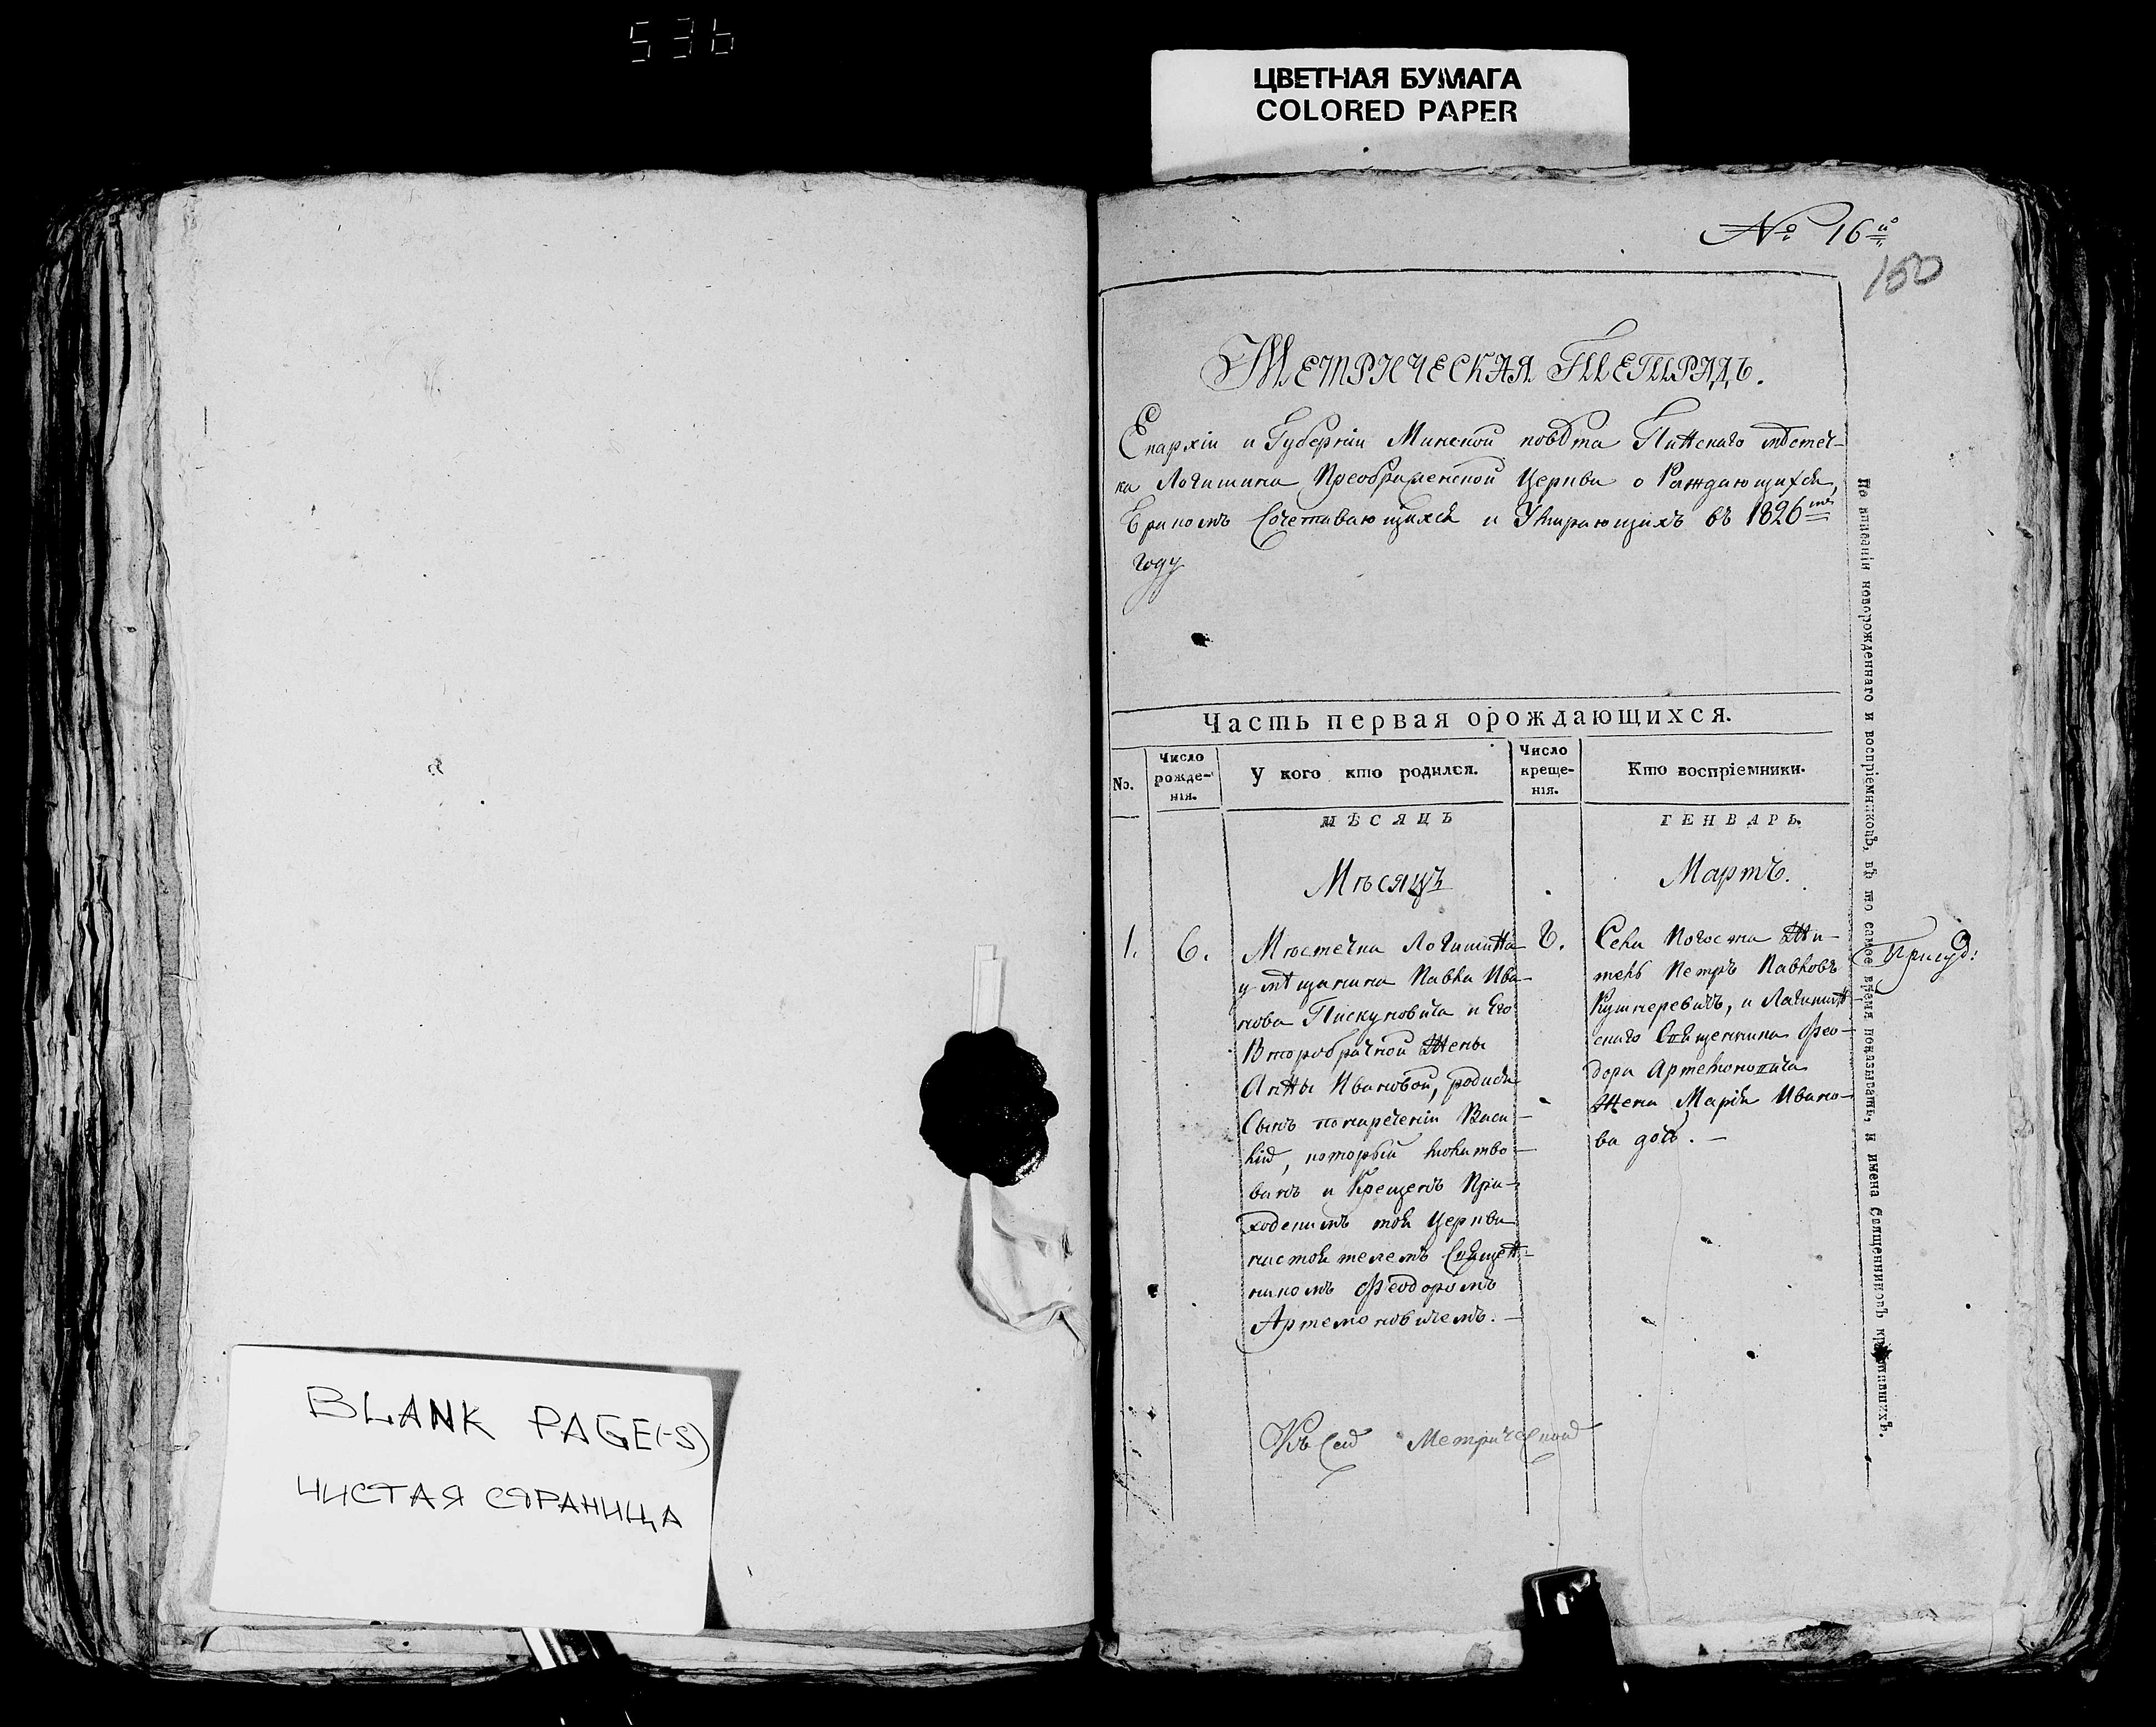 536
ЦВЕТНАЯ БУМАГА
COLORED PAPER
№ 16й
150
МЕТРИЧЕСКАЯ ТЕТРАДЬ.
Епархіи и Губерніи Минской повѣта Пинскаго мѣстеч-
ка Логишина Преображенской Церкви о Раждающихся,
Бракомъ Сочетавающихся и Умирающихъ въ 1826мъ
году
Часть первая орождающихся.
No.
Число рожде- нія.
У кого кто родился.
Число креще- нія.
Кто воспріемники.
МѢСЯЦЪ
ГЕНВАРЬ.
Мѣсяцъ
Мартъ.
1.
6.
Мѣстечка Логишина
у мѣщанина Павла Ива-
нова Пискуновича и Его
Второбрачной Жены
Анны Ивановой, родися
Сынъ по наречении Васи-
лій, который молитво-
ванъ и Крещенъ При-
ходскимъ той Церкви
настоятелемъ Священ-
никомъ Феодоромъ
Артемоновичемъ.
Села Погоста Жи-
тель Петръ Павловъ
Кушнеревичъ, и Логишин-
скаго Священника Фео-
дора Артемоновича
Жена Марія Ивано-
ва дочь. —
По вписаніи новорожденнаго и воспріемниковъ, въ то самое время показывать, и имена Священниковъ крестившихъ.
Къ сей Метрической
BLANK PAGE(-S)
ЧИСТАЯ СТРАНИЦА